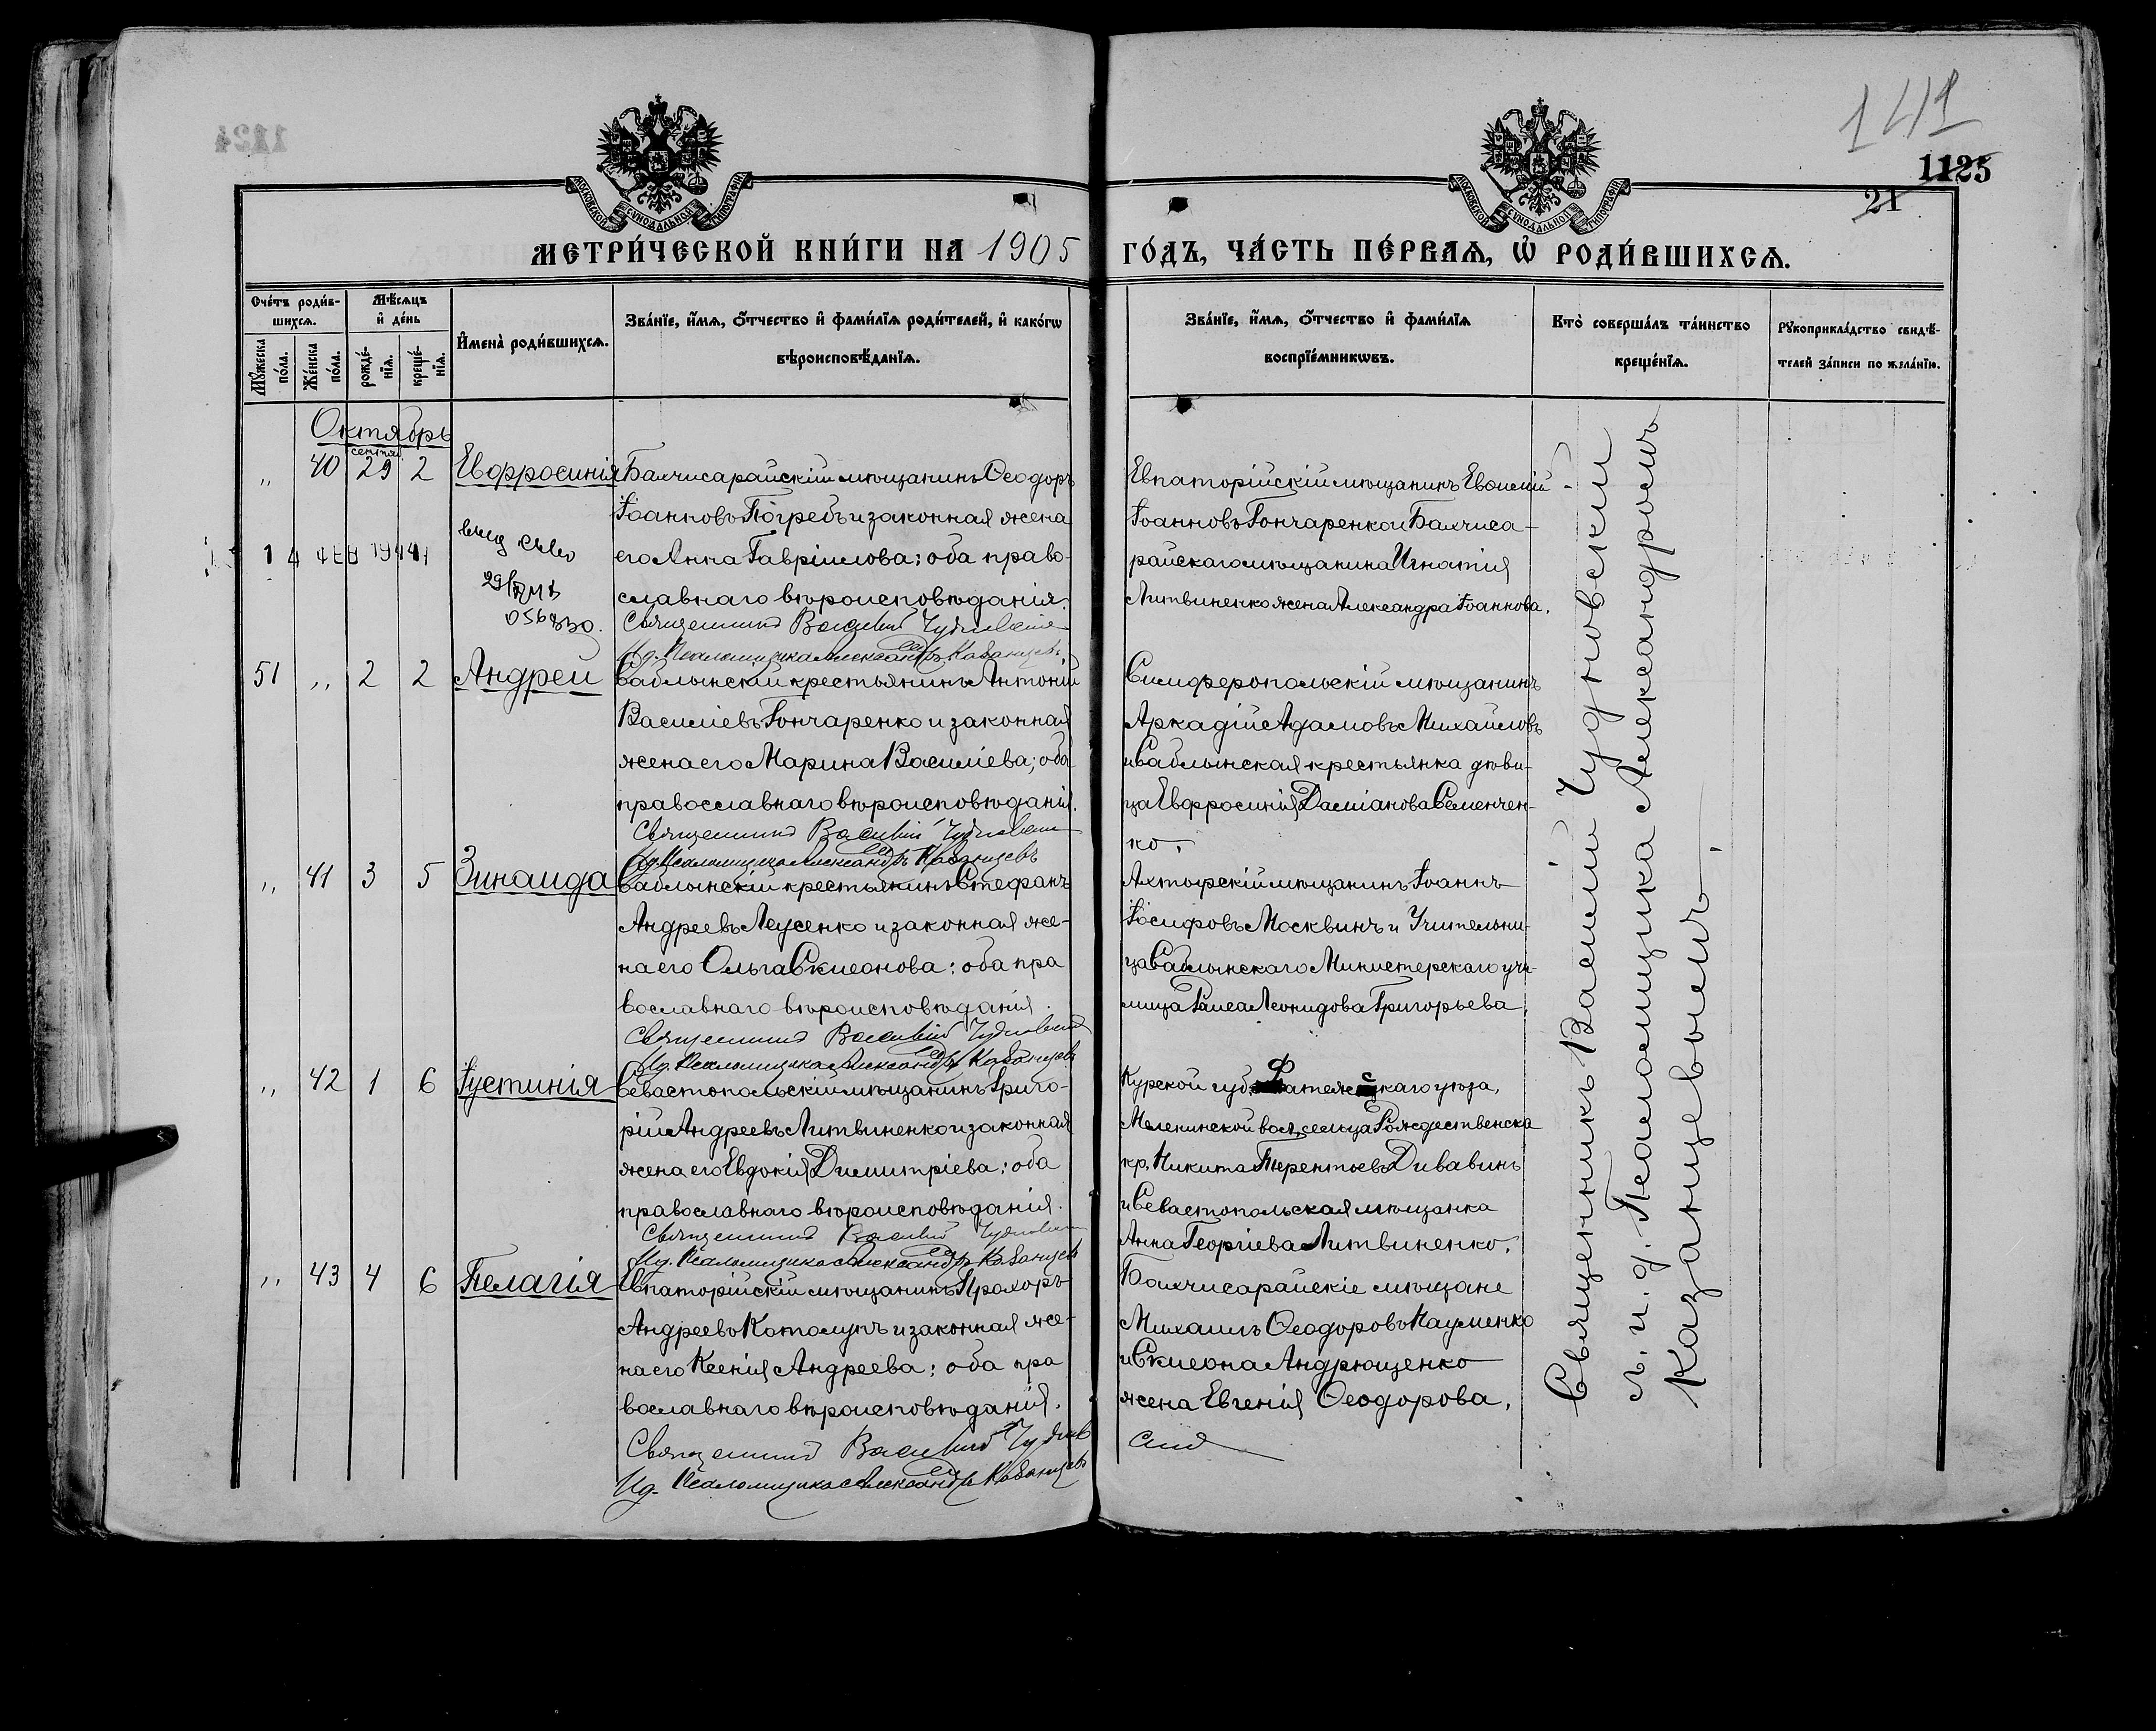 1124
141
1125
21
МОСКОВСКОЙ СѴНОДАЛЬНОЙ ТИПОГРАФІИ
МОСКОВСКОЙ СѴНОДАЛЬНОЙ ТИПОГРАФІИ
МЕТРИ́ЧЕСКОЙ КНИ́ГИ НА 1905 ГО́ДЪ, ЧА́СТЬ ПЕ́РВАѦ, Ѽ РОДИ́ВШИХСѦ.
Сче́тъ роди́в-
шихсѧ.
Мꙋ́жеска по́ла.
Же́нска по́ла.
Мѣ́сѧцъ
и҆ де́нь
рожде́-
нїѧ.
креще́-
нїѧ.
И҆мена̀ роди́вшихсѧ.
Зва́нїе, и҆́мѧ, ѻ҆́тчество и҆ фами́лїѧ роди́телей, и҆ како́гѡ
вѣроисповѣ́данїѧ.
Зва́нїе, и҆́мѧ, ѻ҆́тчество и҆ фами́лїѧ
воспрїе́мникѡвъ.
Кто̀ соверша́лъ та́инство
креще́нїѧ.
Рꙋкоприкла́дство свидѣ́-
телей за́писи по жела́нїю.
Октябрь
сентяб.
„ 40 29 2 Евфросинія
Бахчисарайскій мѣщанинъ Ѳеодоръ
Іоанновъ Погребъ и законная жена
его Анна Гавріилова; оба право-
славнаго вѣроисповѣданія.
Священникъ Василій Чудновскій
И.д. Псаломщика Александръ Казанцевъ
Евпаторійскій мѣщанинъ Евѳимій
Іоанновъ Гончаренко и Бахчиса-
райскаго мѣщанина Игнатія
Литвиненко жена Александра Іоаннова.
51 „ 2 2 Андрей
Саблынскій крестьянинъ Антоній
Василіевъ Гончаренко и законная
жена его Марина Василіева; оба
православнаго вѣроисповѣданія.
Священникъ Василій Чудновскій
И.д. Псаломщика Александръ Казанцевъ
Симферопольскій мѣщанинъ
Аркадій Адамовъ Михайловъ
и Саблынская крестьянка дѣви-
ца Евфросинія Даміанова Семенчен-
ко.
„ 41 3 5 Зинаида
Саблынскій крестьянинъ Стефанъ
Андреевъ Леусенко и законная же-
на его Ольга Симеонова; оба пра
вославнаго вѣроисповѣданія.
Священникъ Василій Чудновскій
И.д. Псаломщика Александръ Казанцевъ
Ахтырскій мѣщанинъ Іоаннъ
Іосифовъ Москвинъ и Учительни-
ца Саблынскаго Министерскаго учи-
лища Раиса Леонидова Григорьева.
„ 42 1 6 Іустинія
Севастопольскій мѣщанинъ Григо-
рій Андреевъ Литвиненко и законная
жена его Евдокія Димитріева; оба
православнаго вѣроисповѣданія.
Священникъ Василій Чудновскій
И.д. Псаломщика Александръ Казанцевъ
Курской губ. Фатежскаго уѣзда,
Меленинской вол. сельца Рождественска
кр. Никита Терентьевъ Дивавинъ
и Севастопольская мѣщанка
Анна Георгіева Литвиненко.
„ 43 4 6 Пелагія
Евпаторійскій мѣщанинъ Прохоръ
Андреевъ Катомупъ и законная же-
на его Ксенія Андреева; оба пра
вославнаго вѣроисповѣданія.
Священникъ Василій Чуднов
И.д. Псаломщика Александръ Казанцевъ
Бахчисарайскіе мѣщане
Михаилъ Ѳеодоровъ Науменко
и Симеона Андрющенко
жена Евгенія Ѳеодорова.
Священникъ Василій Чудновскій
съ и. д. Псаломщика Александромъ
Казанцевымъ.